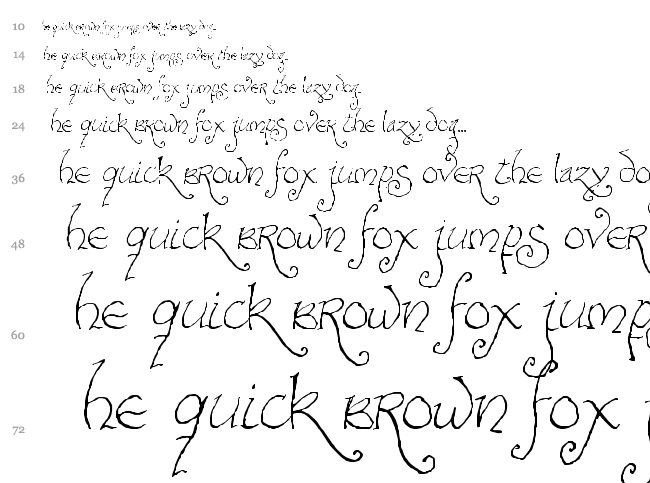 10 he quick brown fox jumps over the lazy dog...
14 he quick brown fox jumps over the lazy dog...
18 he quick brown fox jumps over the lazy dog...
24 he quick brown fox jumps over the lazy dog...
36 he quick brown fox jumps over the lazy do
48 he quick brown fox jumps over
60 he quick brown fox jump
72 he quick brown fox j